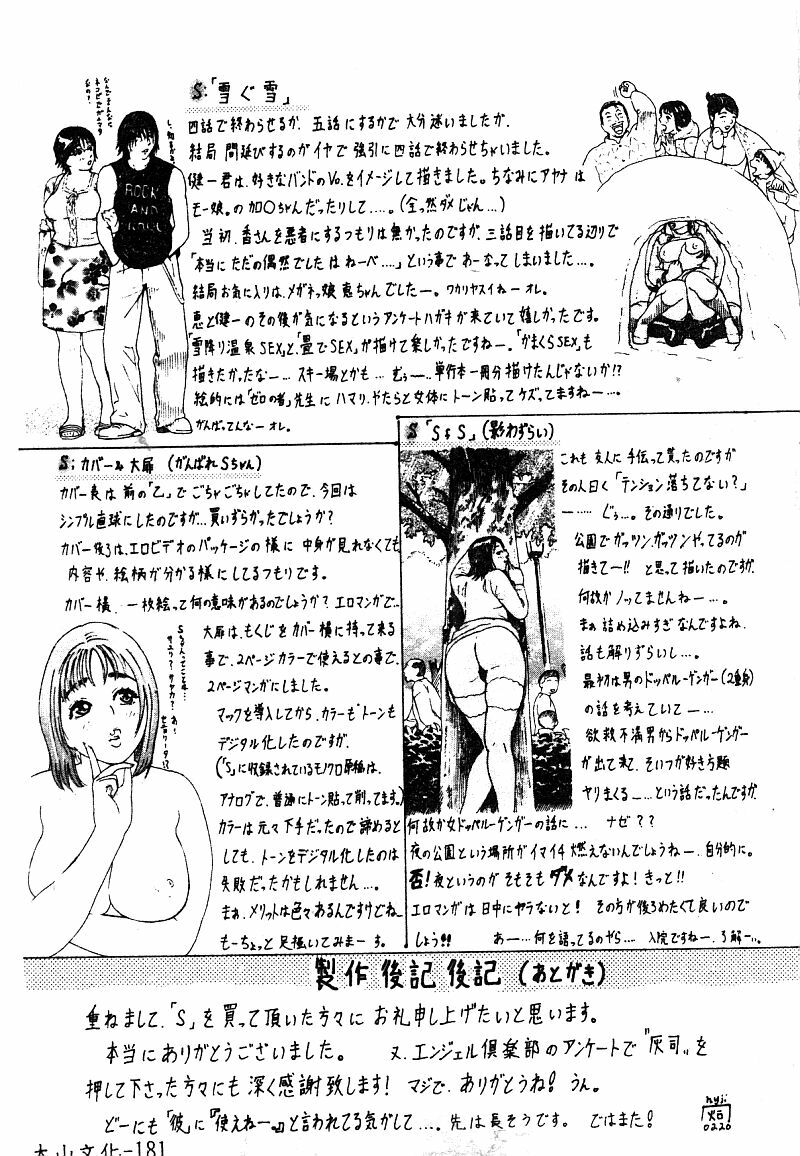 S:「雪ぐ雪」
四話で終わらせるか、五話にするかで大分迷いましたが、
結局間延びするのがイヤで強引に四話で終わらせちゃいました。
健一君は、好きなバンドのVo.をイメージして描きました。ちなみにアヤナは
モー娘。の加〇ちゃんだったりして…。(全然ダメじゃん…)
当初、香さんを悪者にするつもりは無かったのですが、三話目を描いてる辺りで
「本当にただの偶然でした はねーべ…」という事で わーなってしまいました…。
結局お気に入りは、メガネっ娘 恵ちゃんでしたー。ワカリヤスイねーオレ。
恵と健一のその後が気になるというアンケートハガキが来ていて嬉しかったです。
「雪降り温泉SEX」と「畳でSEX」が描けて楽しかったですねー。「かまくらSEX」も
描きたかったなー… スキー場とかも… むぅー…単行本一冊分描けたんじゃないか!?
絵的には「ゼロの者」先生にハマリ、やたらと女体にトーン貼ってケズってますねー…。
がんばってんなーオレ。
ROCK
AND
ROLL
S:カバー&大扉 (がんばれSちゃん)
カバー表は前の「乙」でごちゃごちゃしてたので、今回は
シンプル直球にしたのですが…買いずらかったでしょうか?
カバー後ろは、エロビデオのパッケージの様に中身が見れなくても
内容や、絵柄が分かる様にしてるつもりです。
カバー横、一枚絵って何の意味があるのでしょうか?エロマンガで…
大扉は、もくじをカバー横に持って来る
事で、2ページカラーで使えるとの事で、
2ページマンガにしました。
マックを導入してから、カラーもトーンも
デジタル化したのですが、
(「S」に収録されているモノクロ原稿は、
アナログで、普通にトーン貼って削ってます。)
カラーは元々下手だったので諦めると
しても、トーンをデジタル化したのは
失敗だったかもしれません…。
まぁ、メリットは色々あるんですけどね、
もーちょっと足掻いてみまーす。
S「S&S」(影わずらい)
これも友人に手伝って貰ったのですが
その人曰く「テンション落ちてない?」
……ぐぅ…。その通りでした。
公園でガッツン、ガッツンやってるのが
描きてー!! と思って描いたのですが、
何故かノッてませんねー…。
まぁ詰め込みすぎなんですよね、
話も解りずらいし…。
最初は男のドッペルーゲンガー(2重身)
の話を考えていてー…
欲求不満男からドッペルーゲンガー
が出て来て、そいつが好き放題
ヤリまくるー…という話だったんですが、
何故か女ドッペルーゲンガーの話に… ナゼ??
夜の公園という場所がイマイチ燃えないんでしょうねー、自分的に。
否!夜というのがそもそもダメなんですよ!きっと!!
エロマンガは日中にヤラないと! その方が後ろめたくて良いので
しょう!! あー…何を語ってるのやら… 入院ですねー、了解ー…。
製作後記後記(あとがき)
重ねまして、「S」を買って頂いた方々にお礼申し上げたいと思います。
本当にありがとうございました。 又、エンジェル倶楽部のアンケートで『灰司』を
押して下さった方々にも深く感謝致します! マジで、ありがとうね! うん。
どーにも「彼」に『使えねー』と言われてる気がして…。先は長そうです。 ではまた!
0220
大山文化-181